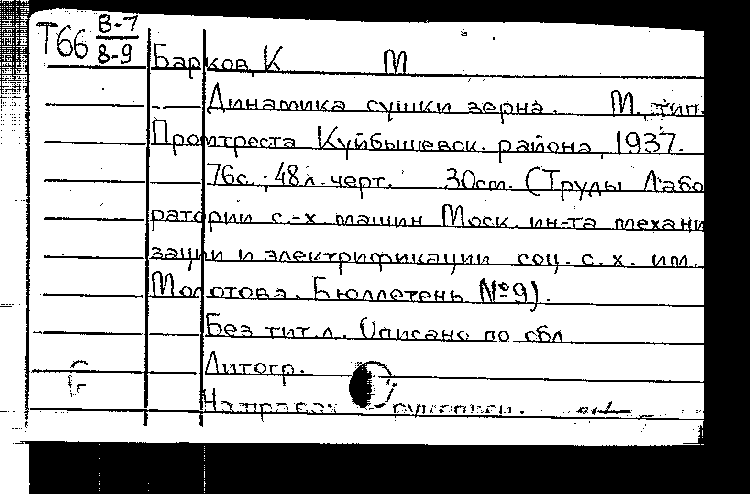 Т66 В-7
8-9
Барков, К М
Динамика сушки зерна. М., тип.
Промтреста Куйбышевск. района, 1937.
76с.; 48л. черт. 30см. (Труды Лабо
ратории с.-х. машин Моск. ин-та механи
зации и электрификации соц. с. х. им.
Молотова. Бюллетень №9).
Без тит. л. Описано по обл
Литогр.
На правах рукописи.